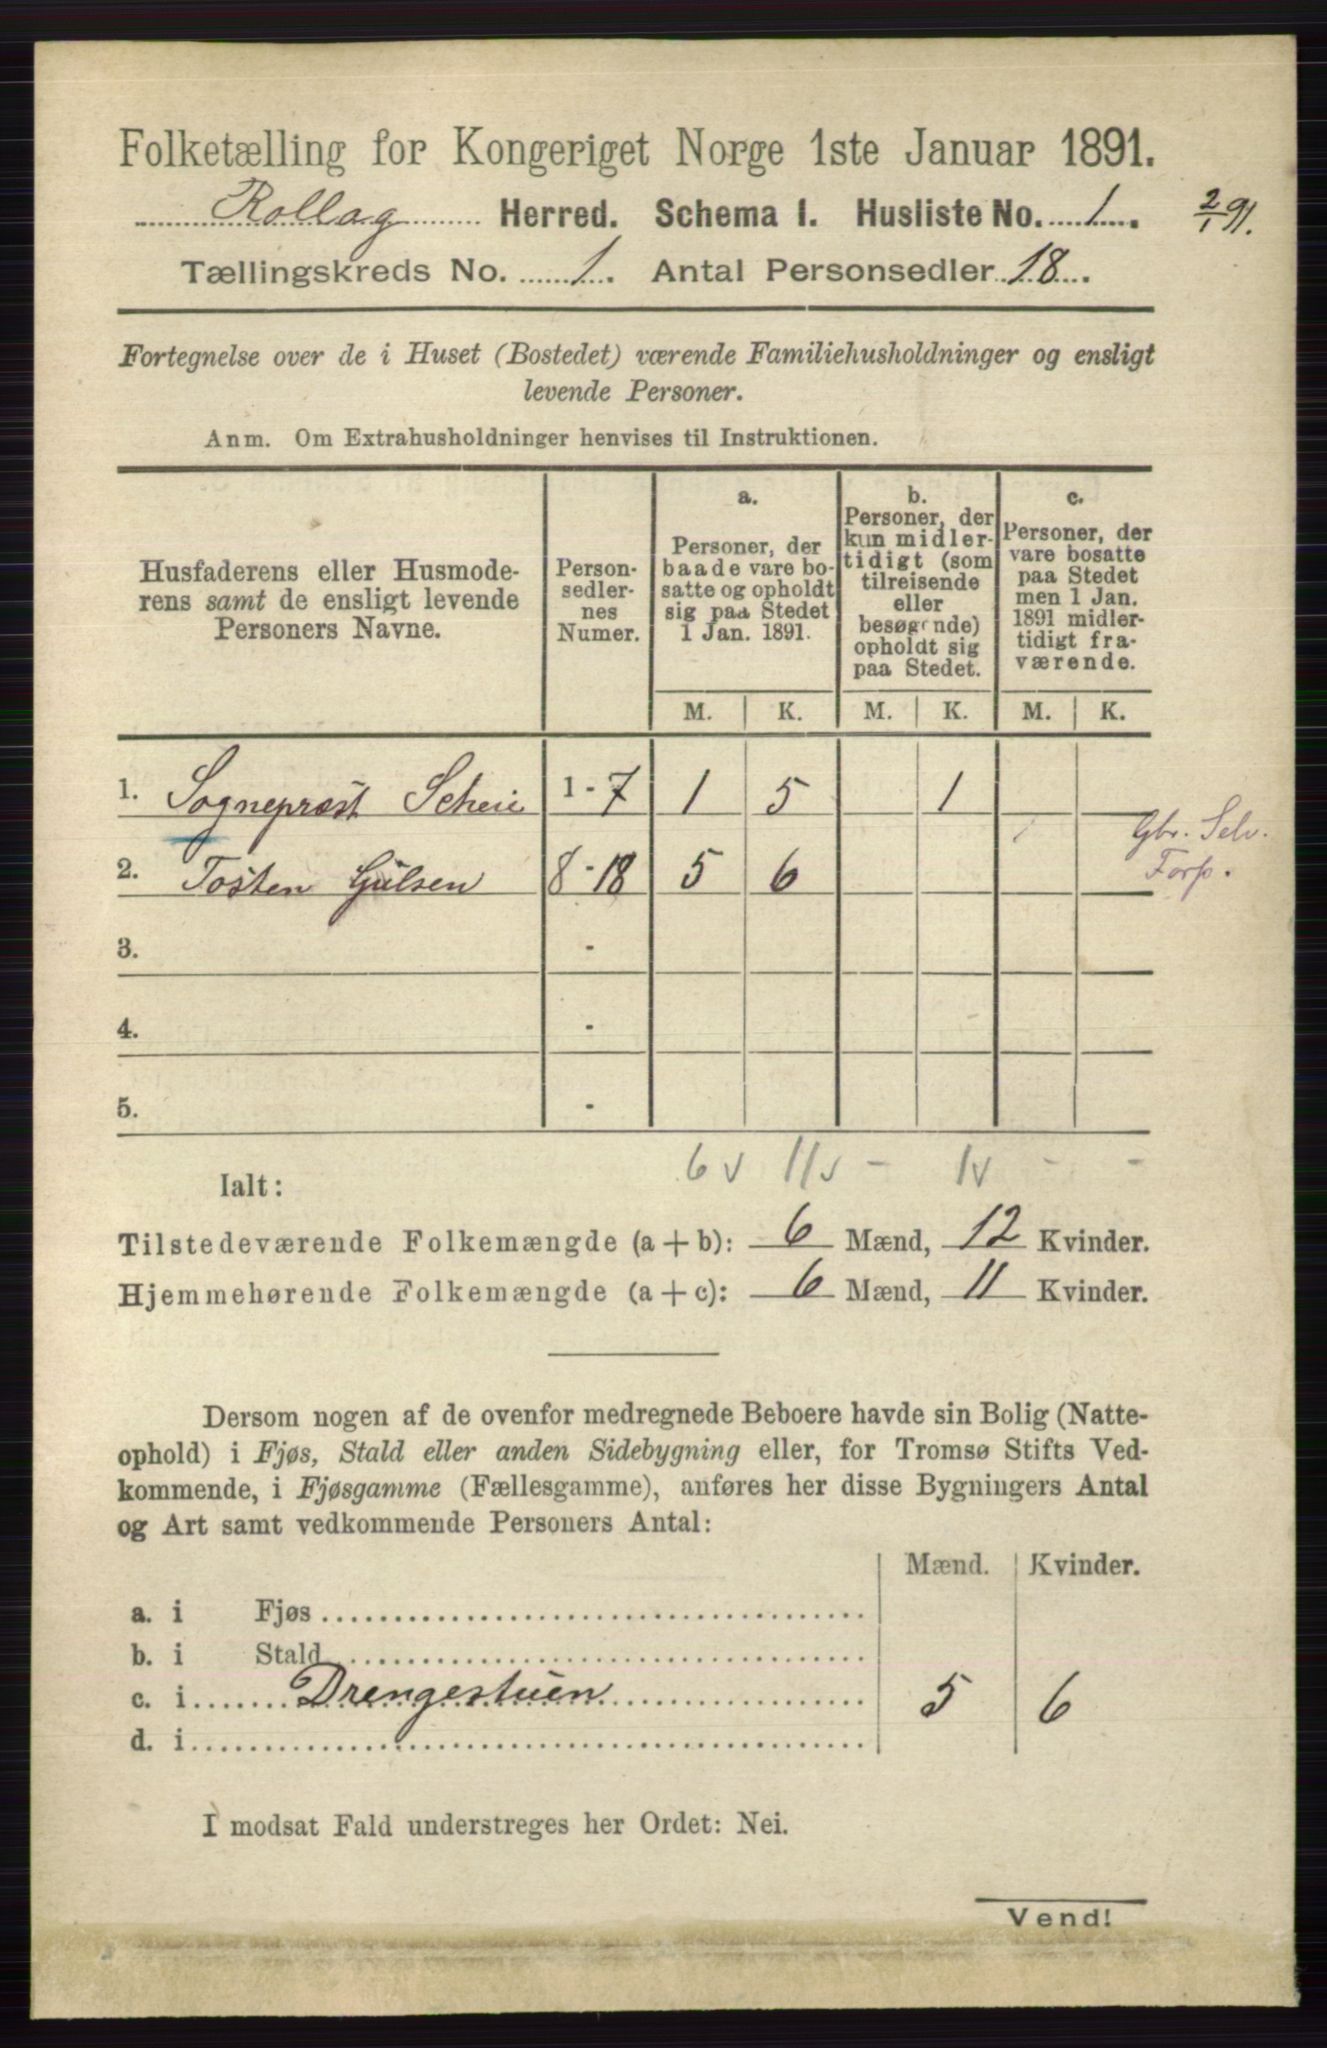 Folketælling for Kongeriget Norge 1ste Januar 1891.
Rollag Herred. Schema I. Husliste No. 1.
2/1 91.
Tællingskreds No. 1. Antal Personsedler 18.
Fortegnelse over de i Huset (Bostedet) værende Familiehusholdninger og ensligt
levende Personer.
Anm. Om Extrahusholdninger henvises til Instruktionen.
Husfaderens eller Husmode-
rens samt de ensligt levende
Personers Navne.
Person-
sedler-
nes
Numer.
a.
Personer, der
baade vare bo-
satte og opholdt
sig paa Stedet
1 Jan. 1891.
b.
Personer, der
kun midler-
tidigt (som
tilreisende
eller
besøgende)
opholdt sig
paa Stedet.
c.
Personer, der
vare bosatte
paa Stedet
men 1 Jan.
1891 midler-
tidigt fra-
værende.
M. K. M. K. M. K.
1. Sogneprest Scheie 1 - 7 1 5 1
2. Tosten Gulsen 8 - 18 5 6
Gbr. Selv.
Forp.
3. -
4. -
5. -
6 v 11 v - 1 v - -
Ialt:
Tilstedeværende Folkemængde (a + b): 6 Mænd, 12 Kvinder.
Hjemmehørende Folkemængde (a + c): 6 Mænd, 11 Kvinder.
Dersom nogen af de ovenfor medregnede Beboere havde sin Bolig (Natte-
ophold) i Fjøs, Stald eller anden Sidebygning eller, for Tromsø Stifts Ved-
kommende, i Fjøsgamme (Fællesgamme), anføres her disse Bygningers Antal
og Art samt vedkommende Personers Antal:
Mænd. Kvinder.
a. i Fjøs
b. i Stald
c. i Drengestuen 5 6
d. i
I modsat Fald understreges her Ordet: Nei.
Vend!